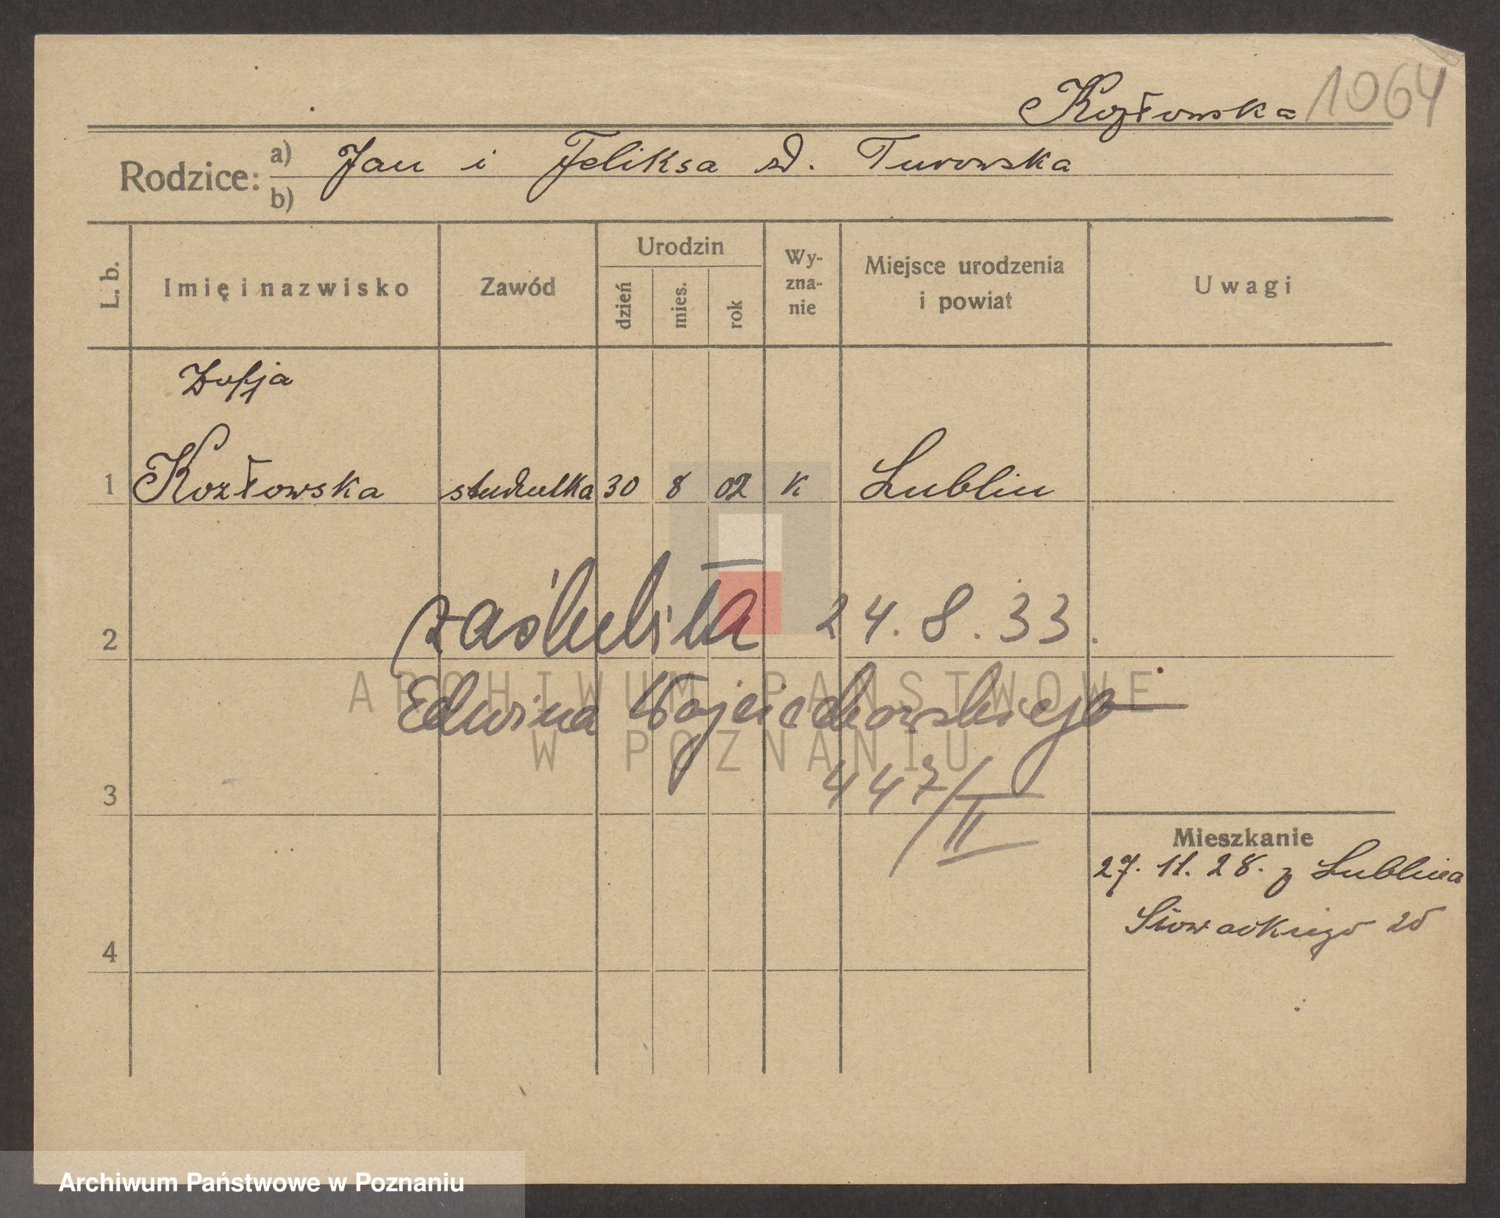 Kozłowska 1064
Rodzice: a) Jan i Feliksa zd. Turowska
b)
L. b.
Imię i nazwisko
Zawód
Urodzin
dzień
mies.
rok
Wy-
zna-
nie
Miejsce urodzenia
i powiat
Uwagi
Zofja
1 Kozłowska studentka 30 8 02 K Lublin
2 zaślubiła 24.8.33.
ARCHIWUM PAŃSTWOWE
Edwina Wojciechowskiego
W POZNANIU
3 447/II
Mieszkanie
27. 11. 28. z Lublina
Słowackiego 25
4
Archiwum Państwowe w Poznaniu